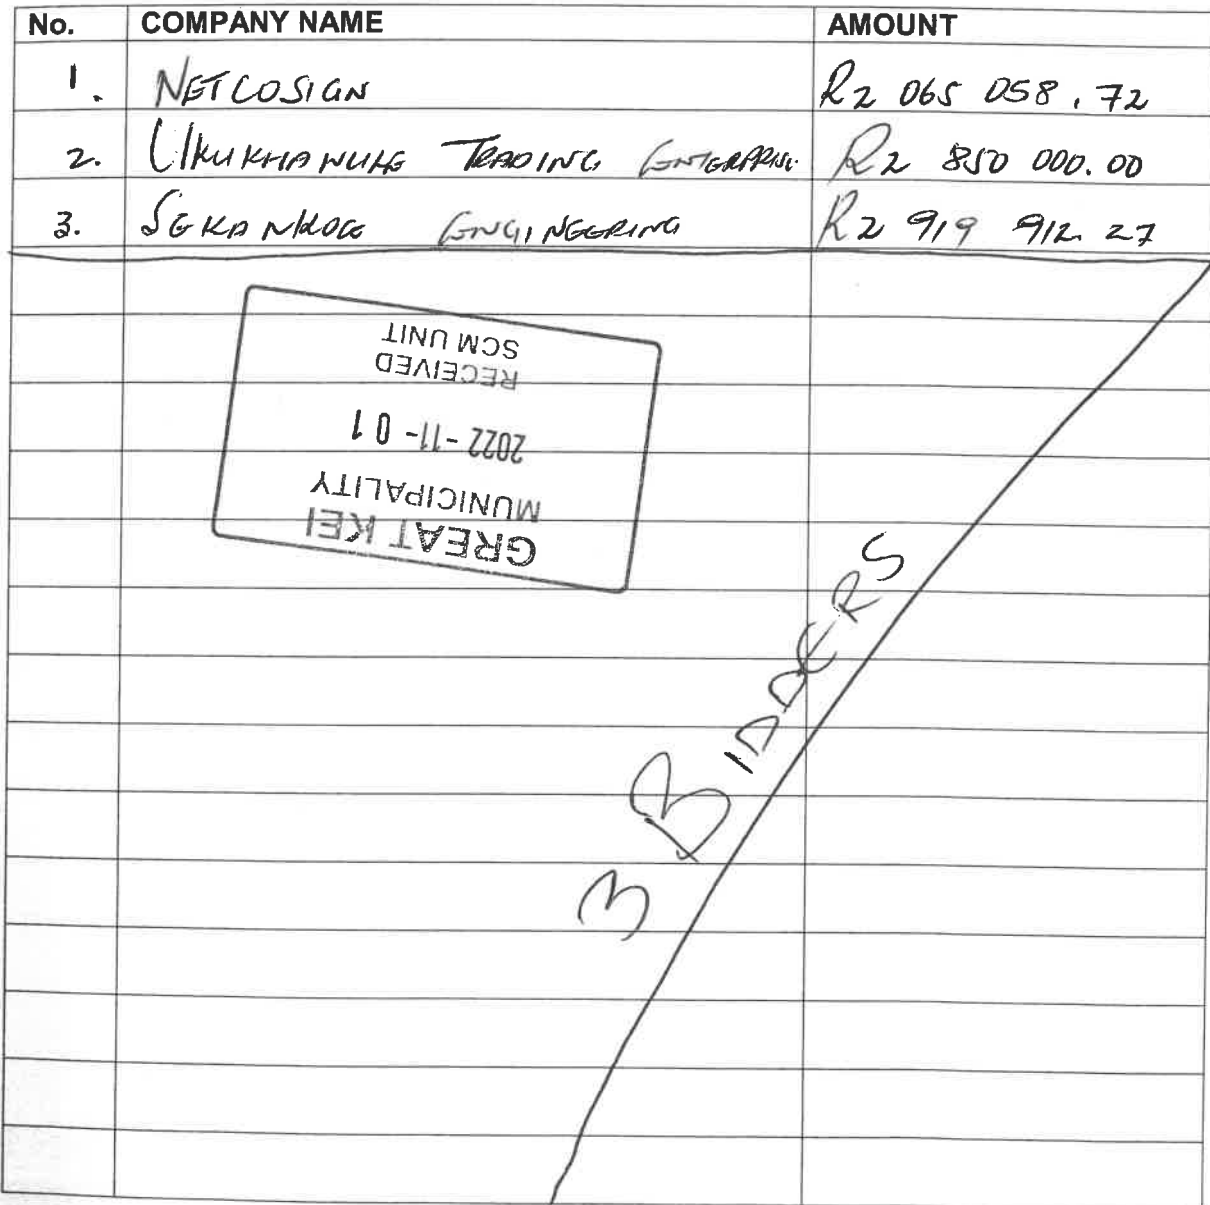 No. COMPANY NAME AMOUNT
1. NETCOSIGN R2 065 058.72
2. TRADING ENTERPRISE R2 850 000.00
3. ENGINEERING R2 919 912.27
GREAT KEI
MUNICIPALITY
2022-11-01
RECEIVED
SCM UNIT
3 BIDDERS